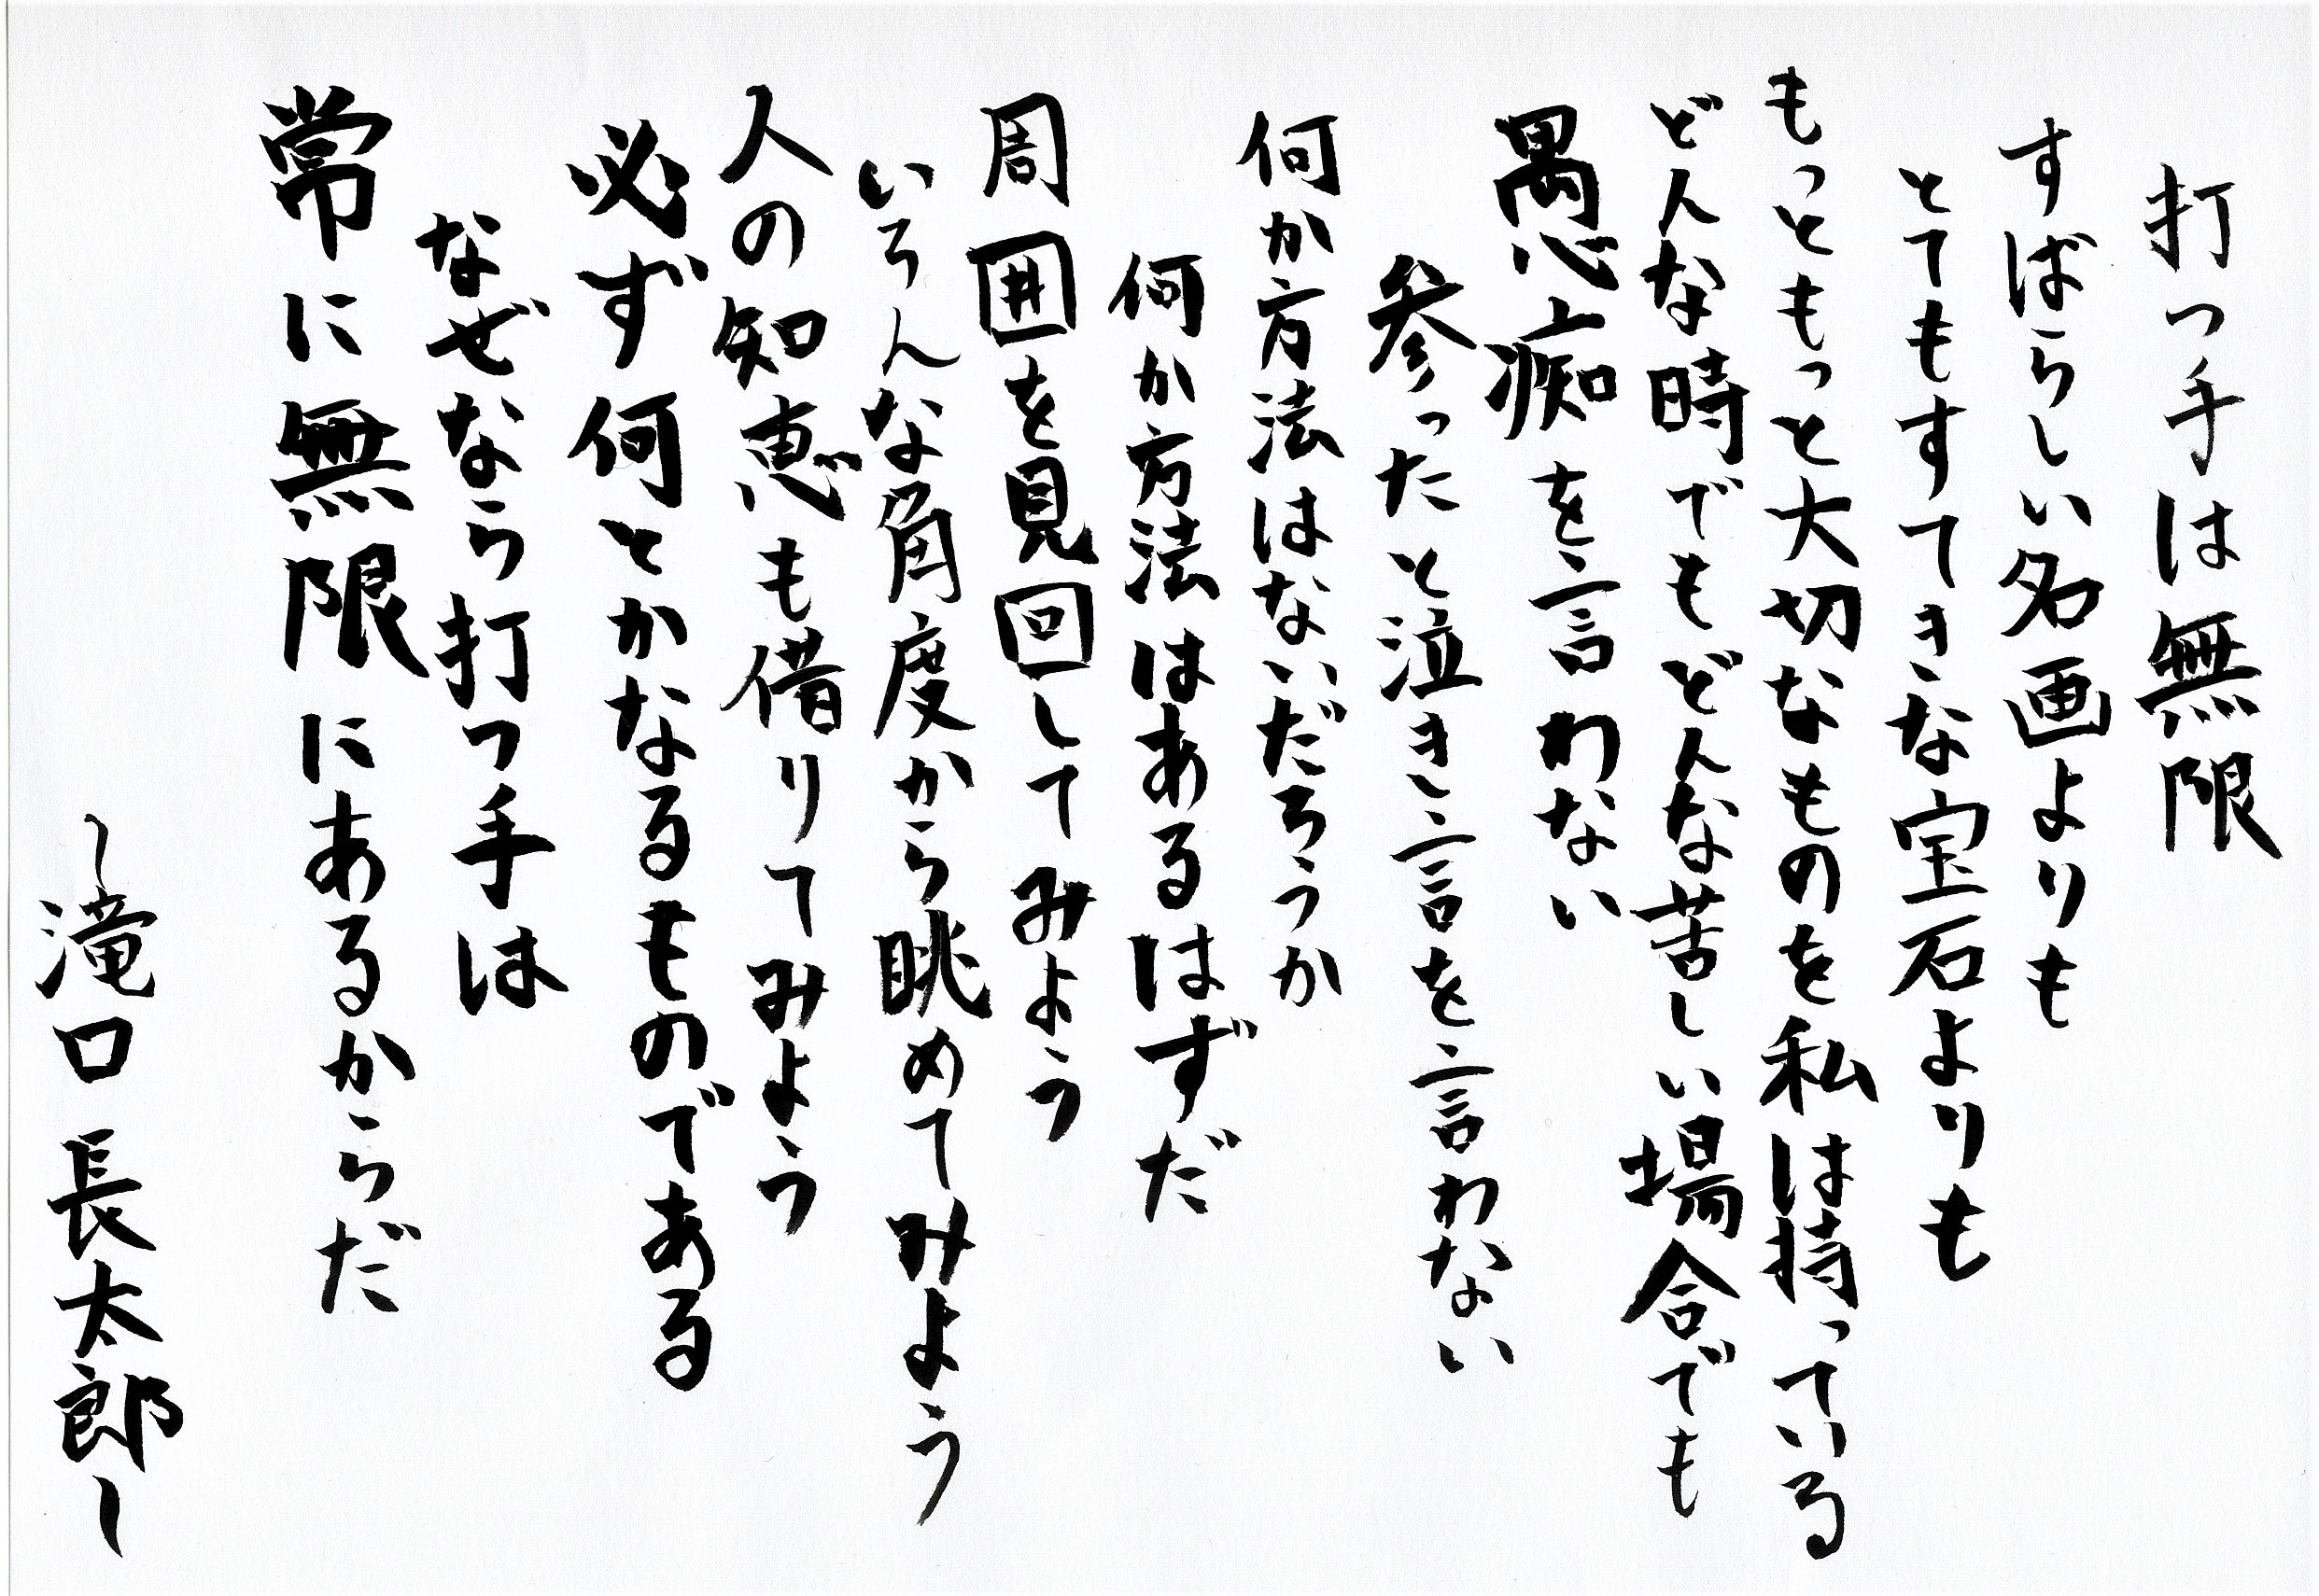 打つ手は無限
すばらしい名画よりも
とてもすてきな宝石よりも
もっともっと大切なものを私は持っている
どんな時でもどんな苦しい場合でも
愚痴を言わない
参ったと泣き言を言わない
何か方法はないだろうか
何か方法はあるはずだ
周囲を見回してみよう
いろんな角度から眺めてみよう
人の知恵も借りてみよう
必ず何とかなるものである
なぜなら打つ手は
常に無限にあるからだ
～滝口長太郎～